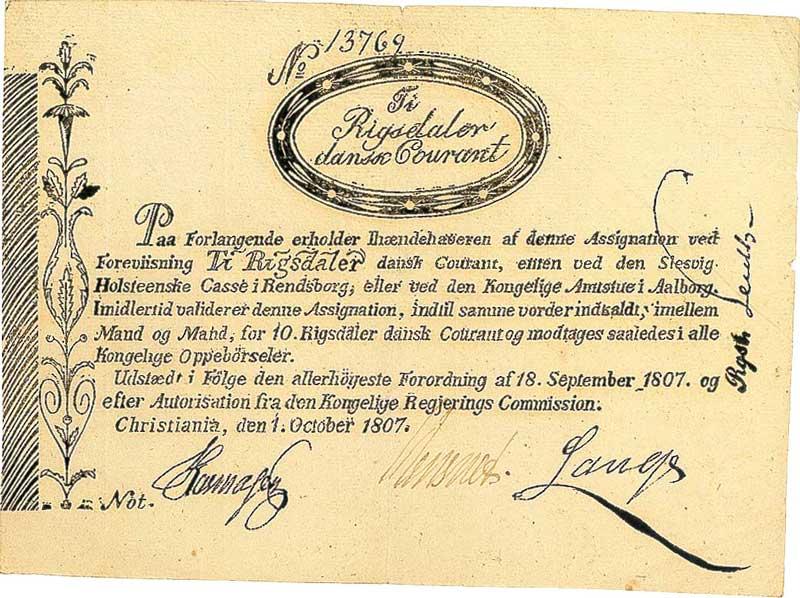 No 13769
Ti
Rigsdaler
dansk Courant
Paa Forlangende erholder Ihændehaveren af denne Assignation ved
Foreviisning Ti Rigsdaler dansk Courant, enten ved den Slesvig-
Holsteenske Casse i Rendsborg, eller ved den Kongelige Amtstue i Aalborg.
Imidlertid validerer denne Assignation, indtil samme vorder indkaldt, imellem
Mand og Mand, for 10. Rigsdaler dansk Courant og modtages saaledes i alle
Kongelige Oppebörseler.
Udstædt i Fölge den allerhögeste Forordning af 18. September 1807. og
efter Autorisation fra den Kongelige Regjerings Commission.
Christiania, den 1. October 1807.
Not.
Lange
Rgst.